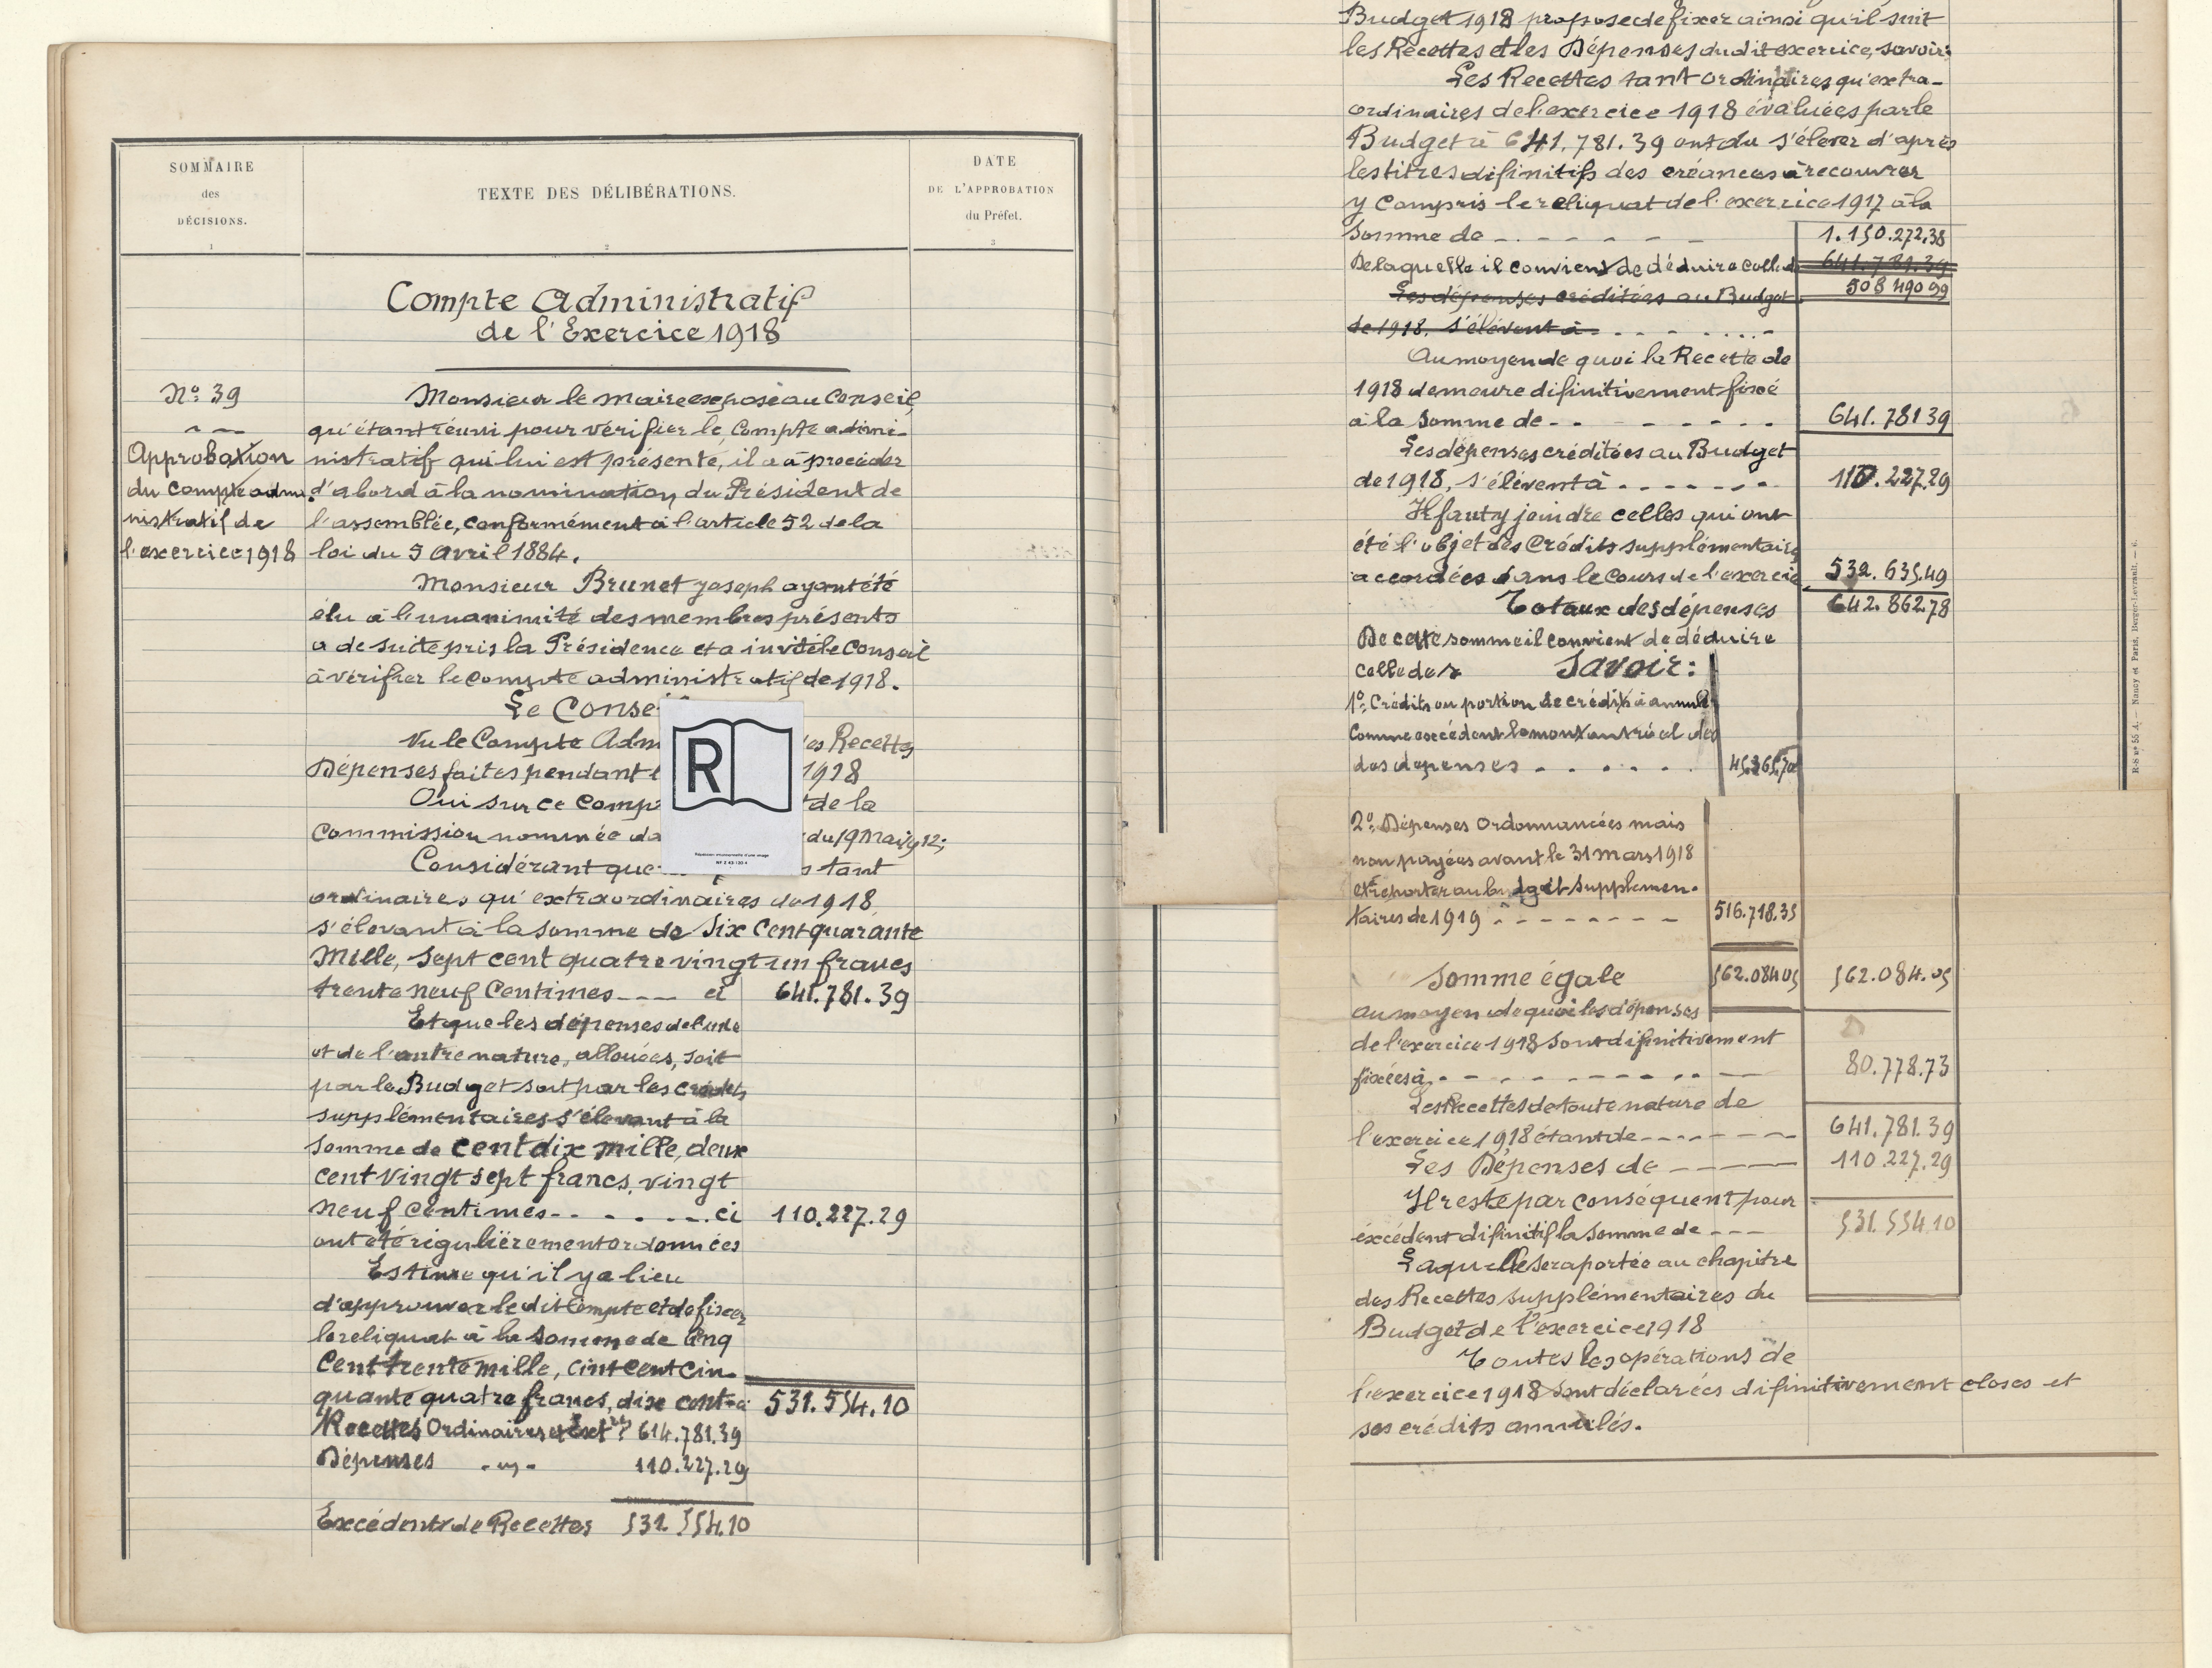 SOMMAIRE
des
DÉCISIONS.
1
TEXTE DES DÉLIBÉRATIONS.
2
DATE
DE L'APPROBATION
du Préfet.
3
Compte Administratif
de l'Exercice 1918
N° 39
Approbation
du compte admi
nistratif de
l'exercice 1918
Monsieur le maire expose au Conseil,
qu'étant réuni pour vérifier le Compte admi-
nistratif qui lui est présenté, il a à procéder
d'abord à la nomination du Président de
l'assemblée, conformément à l'article 52 de la
loi du 5 avril 1884.
Monsieur Brunet Joseph ayant été
élu à l'unanimité des membres présents
a de suite pris la Présidence et a invité le Conseil
à vérifier le Compte administratif de 1918.
Le Conse
Vu le Compte Adm es Recettes
Dépenses faites pendant l 1918
Oui sur ce Comp t de la
Commission nommée da du 19 Mai 1912;
Considérant que s tant
ordinaires qu'extraordinaires de 1918
s'élevant à la somme de Six Cent quarante
Mille, Sept cent quatre vingt un francs
trente neuf Centimes --- ci 641.781.39
Et que les dépenses de l'une
et de l'autre nature, allouées, soit
par le Budget soit par les crédits
supplémentaires s'élevant à la
somme de Cent dix mille, deux
cent vingt sept francs, vingt
neuf Centimes - - . . . - ci 110.227.29
ont été régulièrement ordonnées
Estime qu'il y a lieu
d'approuver le dit Compte et de fixer
le reliquat à la Somme de Cinq
Cent trente mille, cint cent cin-
quante quatre francs, dix cent. ci 531.554.10
Recettes Ordinaires et Ext 614.781.39
Dépenses - " - 110.227.29
Excédent de Recettes 531.554.10
R
NF Z 43-120-4
Budget 1918 propose de fixer ainsi qu'il suit
les Recettes et les Dépenses dudit exercice, savoir:
Les Recettes tant ordinaires qu'extra-
ordinaires de l'exercice 1918 évaluées par le
Budget à 641.781.39 ont du s'élever d'après
les titres difinitifs des créances à recouvrer
y Compris le reliquat de l'exercice 1917 à la
Somme de - . - - - - - 1.150.272.38
De laquelle il convient de déduire celle d 641.781.39
Les dépenses créditées au Budget 508 490 99
de 1918, s'élèvent à . . . . . . . .
Au moyen de quoi la Recette de
1918 demeure difinitivement fixé
à la Somme de - - - - - - - 641.781 39
Les dépenses créditées au Budget
de 1918, s'élèvent à . . . . . . . 110.227.29
Il faut y joindre celles qui ont
été l'objet des Crédits supplémentaires
accordées dans le cours de l'exercice 532.635.49
Totaux des dépenses 642.862.78
De cette somme il convient de déduire
celle des Savoir:
1° Crédits ou portion de crédit à annuler
Comme excédent le montant réel des
des dépenses . . . . . . 45.365,70
2° Dépenses Ordonnancées mais
non payées avant le 31 mars 1918
et à reporter au budget supplémen-
taires de 1919 - - - - - - - - 516.718.35
Somme égale 562.084 05 562.084.05
au moyen de quoi les dépenses
de l'exercice 1918 sont difinitivement
fixées à - - - - - - - - - 80.778.73
Les Recettes de toute nature de
l'exercice 1918 étant de - - - - - - - 641.781.39
Les Dépenses de ------ 110.227.29
Il reste par conséquent pour
éxcédent difinitif la Somme de --- 531.554.10
Laquelle sera portée au chapitre
des Recettes supplémentaires du
Budget de l'exercice 1918
Toutes les opérations de
l'exercice 1918 sont déclarées difinitivement closes et
ses crédits annulés.
R-S n° 55 A. — Nancy et Paris, Berger-Levrault. — 6.